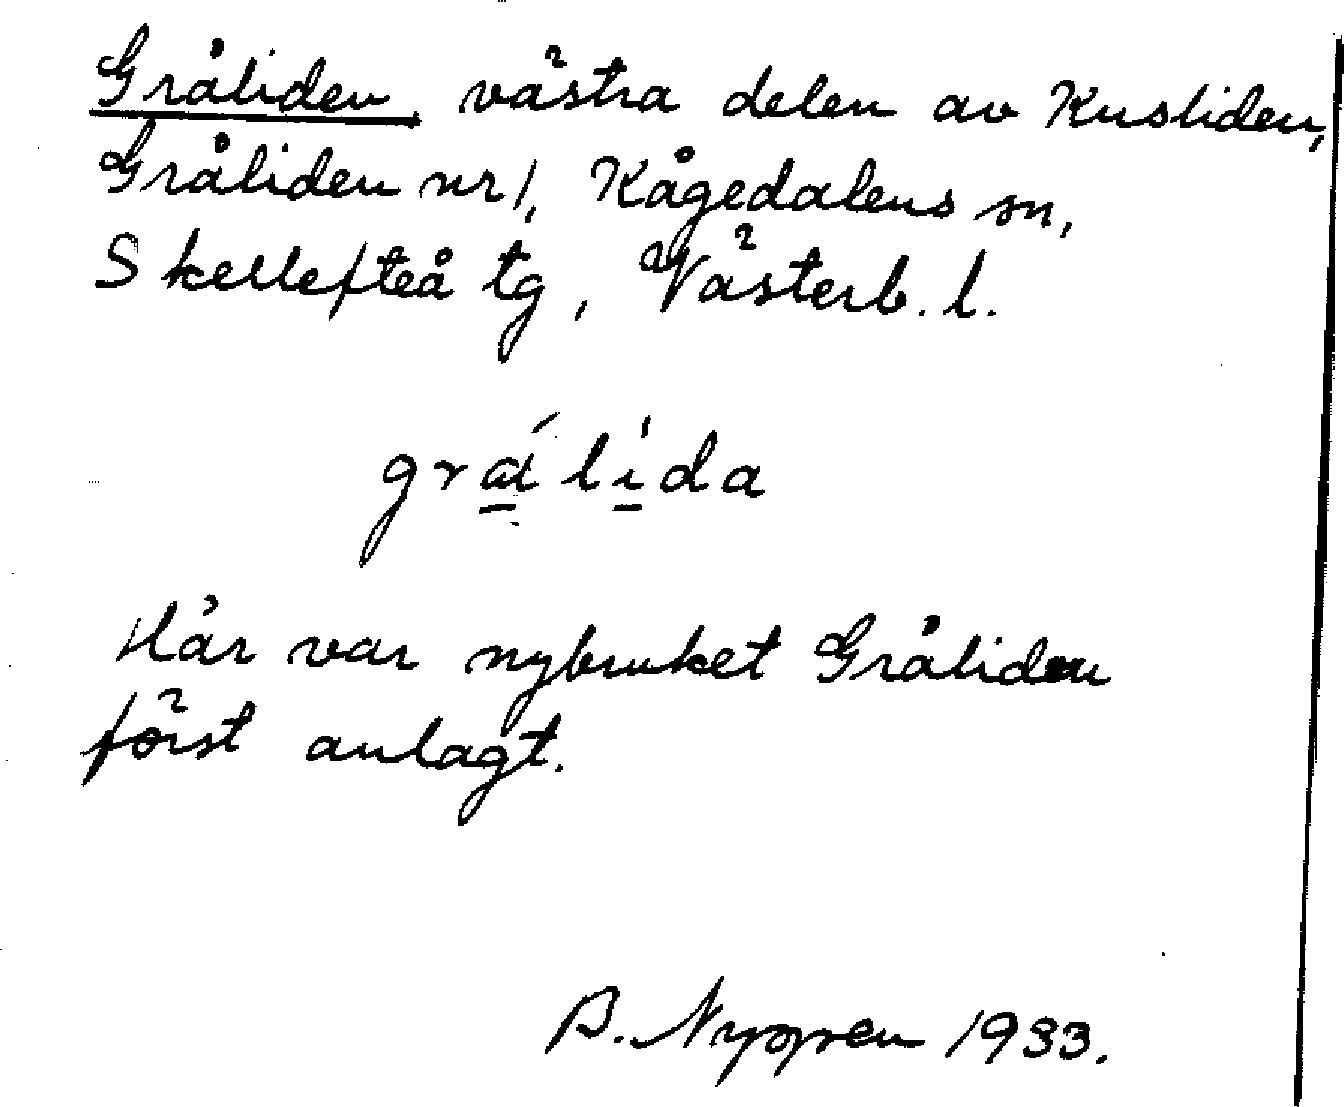 Gråliden, västra delen av Kusliden,
Gråliden nr 1, Kågedalens sn,
Skellefteå tg, Västerb. l.
grálída
Här var nybruket Gråliden
först anlagt.
B. 1933.